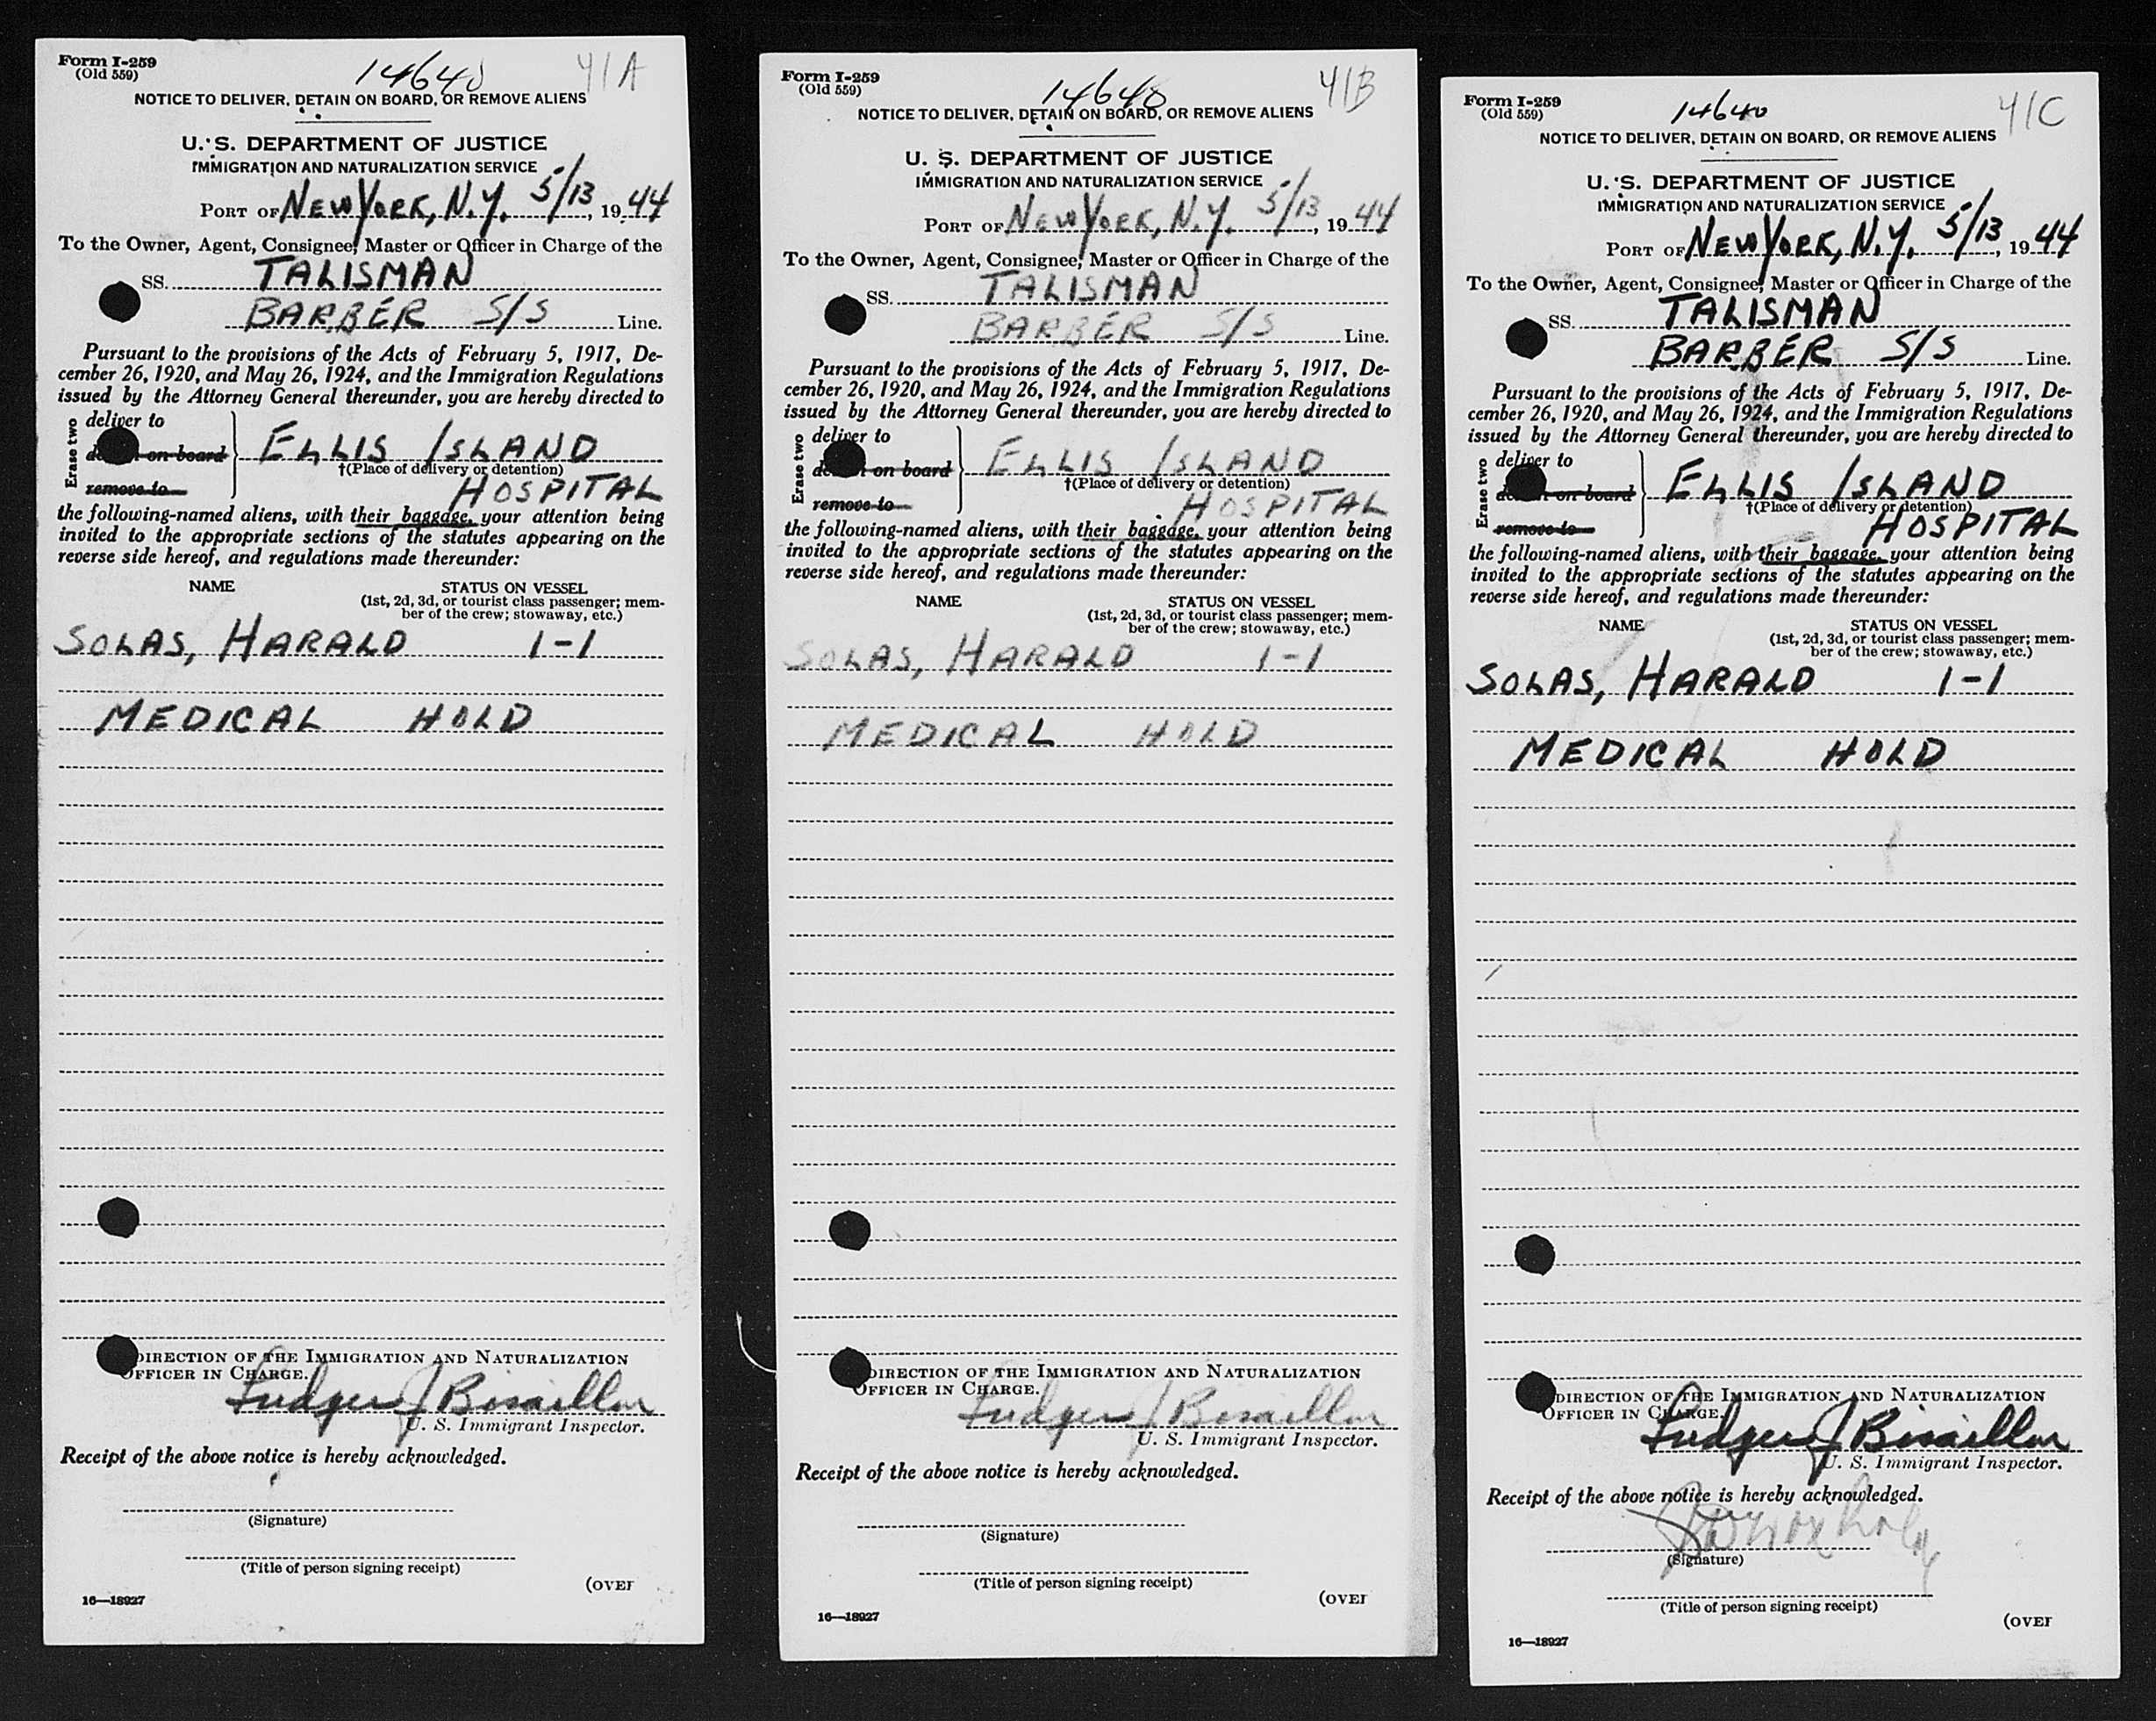 Form I-259
(Old 559)
14640
41A
NOTICE TO DELIVER, DETAIN ON BOARD, OR REMOVE ALIENS
U. S. DEPARTMENT OF JUSTICE
IMMIGRATION AND NATURALIZATION SERVICE
PORT OF NEW YORK, N.Y. 5/13, 1944
To the Owner, Agent, Consignee, Master or Officer in Charge of the
SS. TALISMAN
BARBER S/S Line.
Pursuant to the provisions of the Acts of February 5, 1917, De-
cember 26, 1920, and May 26, 1924, and the Immigration Regulations
issued by the Attorney General thereunder, you are hereby directed to
Erase two
deliver to
on board
remove to
ELLIS ISLAND
†(Place of delivery or detention)
HOSPITAL
the following-named aliens, with their baggage, your attention being
invited to the appropriate sections of the statutes appearing on the
reverse side hereof, and regulations made thereunder:
NAME STATUS ON VESSEL
(1st, 2d, 3d, or tourist class passenger; mem-
ber of the crew; stowaway, etc.)
SOLAS, HARALD 1-1
MEDICAL HOLD
DIRECTION OF THE IMMIGRATION AND NATURALIZATION
OFFICER IN CHARGE.
Ludger J Bisaillon
U. S. Immigrant Inspector.
Receipt of the above notice is hereby acknowledged.
(Signature)
(Title of person signing receipt)
(OVER
16—18927
Form I-259
(Old 559)
14640
41B
NOTICE TO DELIVER, DETAIN ON BOARD, OR REMOVE ALIENS
U. S. DEPARTMENT OF JUSTICE
IMMIGRATION AND NATURALIZATION SERVICE
PORT OF NEW YORK, N.Y. 5/13, 1944
To the Owner, Agent, Consignee, Master or Officer in Charge of the
SS. TALISMAN
BARBER S/S Line.
Pursuant to the provisions of the Acts of February 5, 1917, De-
cember 26, 1920, and May 26, 1924, and the Immigration Regulations
issued by the Attorney General thereunder, you are hereby directed to
Erase two
deliver to
on board
remove to
ELLIS ISLAND
†(Place of delivery or detention)
HOSPITAL
the following-named aliens, with their baggage, your attention being
invited to the appropriate sections of the statutes appearing on the
reverse side hereof, and regulations made thereunder:
NAME STATUS ON VESSEL
(1st, 2d, 3d, or tourist class passenger; mem-
ber of the crew; stowaway, etc.)
SOLAS, HARALD 1-1
MEDICAL HOLD
DIRECTION OF THE IMMIGRATION AND NATURALIZATION
OFFICER IN CHARGE.
Ludger J Bisaillon
U. S. Immigrant Inspector.
Receipt of the above notice is hereby acknowledged.
(Signature)
(Title of person signing receipt)
(OVER
16—18927
Form I-259
(Old 559)
14640
41C
NOTICE TO DELIVER, DETAIN ON BOARD, OR REMOVE ALIENS
U. S. DEPARTMENT OF JUSTICE
IMMIGRATION AND NATURALIZATION SERVICE
PORT OF NEW YORK, N.Y. 5/13, 1944
To the Owner, Agent, Consignee, Master or Officer in Charge of the
SS. TALISMAN
BARBER S/S Line.
Pursuant to the provisions of the Acts of February 5, 1917, De-
cember 26, 1920, and May 26, 1924, and the Immigration Regulations
issued by the Attorney General thereunder, you are hereby directed to
Erase two
deliver to
on board
remove to
ELLIS ISLAND
†(Place of delivery or detention)
HOSPITAL
the following-named aliens, with their baggage, your attention being
invited to the appropriate sections of the statutes appearing on the
reverse side hereof, and regulations made thereunder:
NAME STATUS ON VESSEL
(1st, 2d, 3d, or tourist class passenger; mem-
ber of the crew; stowaway, etc.)
SOLAS, HARALD 1-1
MEDICAL HOLD
DIRECTION OF THE IMMIGRATION AND NATURALIZATION
OFFICER IN CHARGE.
Ludger J Bisaillon
U. S. Immigrant Inspector.
Receipt of the above notice is hereby acknowledged.
(Signature)
(Title of person signing receipt)
(OVER
16—18927